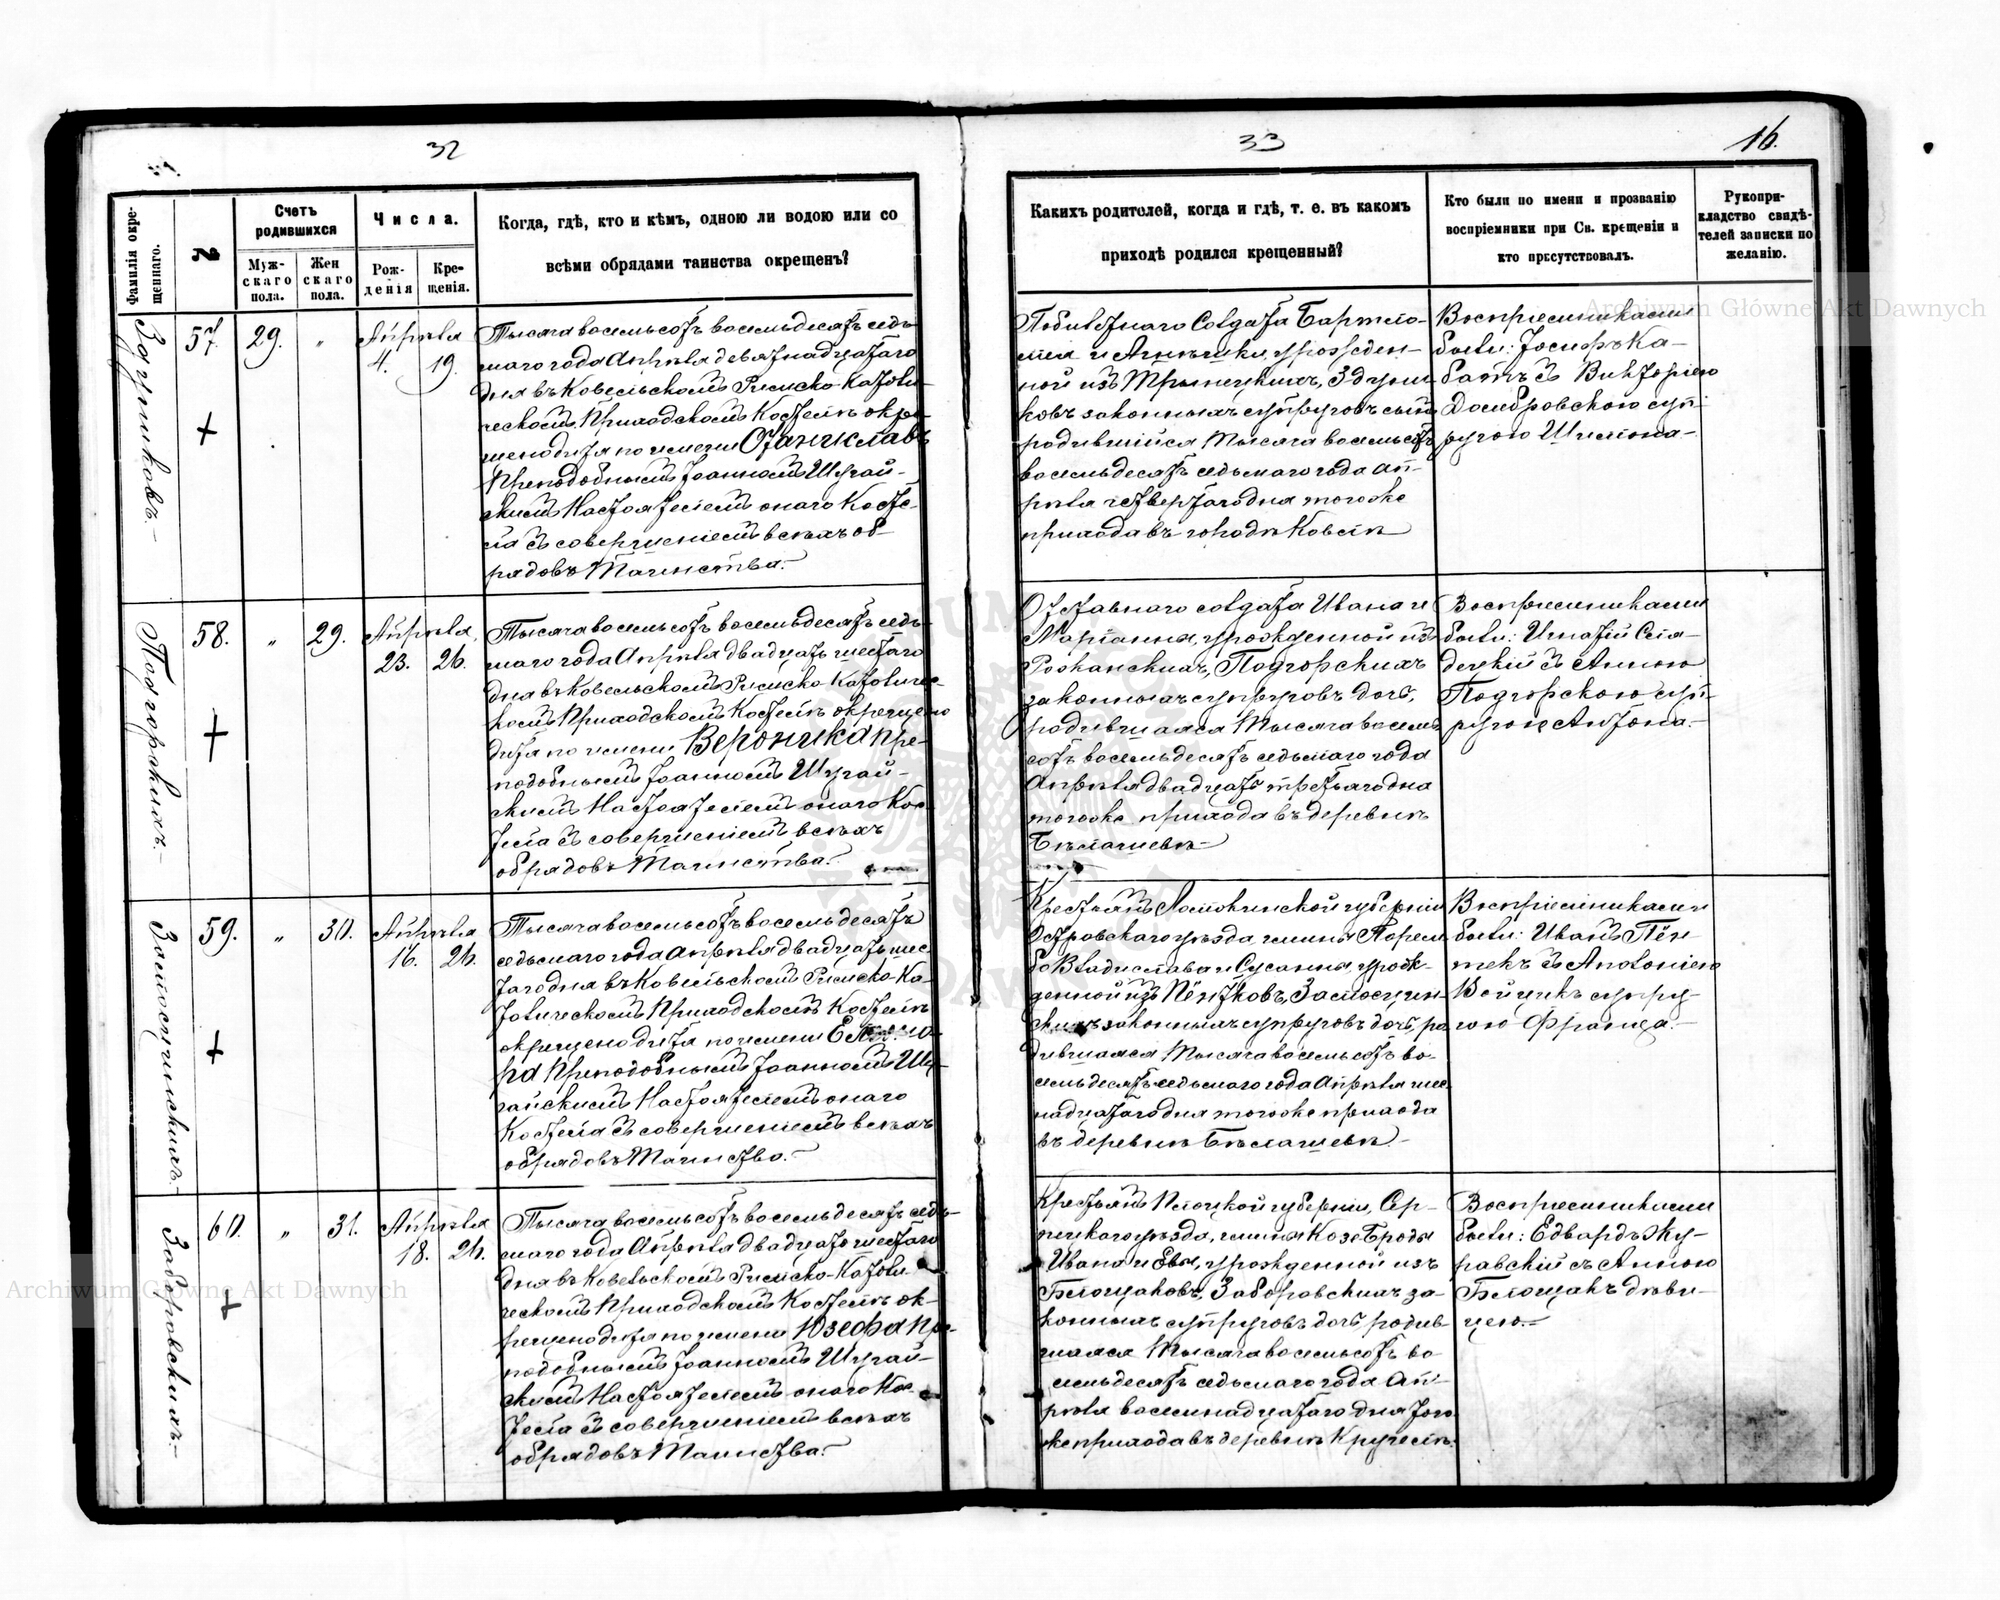 32
Фамилія окрещеннаго.
№
Счетъ родившихся
Мужскаго пола.
Женскаго пола.
Числа.
Рожденія
Крещенія.
Когда, гдѣ, кто и кѣмъ, одною ли водою или со
всѣми обрядами таинства окрещенъ?
57.
29.
"
Апрѣля
4.
19.
Тысяча восемьсотъ восемьдесятъ седь-
маго года Апрѣля девятнадцатаго
дня въ Ковельскомъ Римско-Католи-
ческомъ Приходскомъ Костелѣ окре-
щено дитя по имени Станиславъ
Преподобнымъ Іоанномъ Шугай-
скимъ Настоятелемъ онаго Косте-
ла съ совершеніемъ всѣхъ об-
рядовъ Таинства.-
Подгорскихъ.-
58.
"
29.
Апрѣля
23.
26.
Тысяча восемьсотъ восемьдесятъ седь-
маго года Апрѣля двадцать шестаго
дня въ Ковельскомъ Римско-Католичес-
комъ Приходскомъ Костелѣ окрещено
дитя по имени Вероника Пре-
подобнымъ Іоанномъ Шугай-
скимъ Настоятелемъ онаго Кос-
тела съ совершеніемъ всѣхъ
обрядовъ Таинства.-
59.
"
30.
Апрѣля
16.
26.
Тысяча восемьсотъ восемьдесятъ
седьмаго года Апрѣля двадцать шес-
таго дня въ Ковельскомъ Римско-Ка-
толическомъ Приходскомъ Костелѣ
окрещено дитя по имени
ра Преподобнымъ Іоанномъ Шу-
гайскимъ Настоятелемъ онаго
Костела съ совершеніемъ всѣхъ
обрядовъ Таинство.-
Заборовскихъ.-
60.
"
31.
Апрѣля
18.
26.
Тысяча восемьсотъ восемьдесятъ седь-
маго года Апрѣля двадцать шестаго
дня въ Ковельскомъ Римско-Католи-
ческомъ Приходскомъ Костелѣ ок-
рещено дитя по имени Юзефа Пре-
подобнымъ Іоанномъ Шугай-
скимъ Настоятелемъ онаго Кос-
тела съ совершеніемъ всѣхъ
обрядовъ Таинства.-
33
16.
Какихъ родителей, когда и гдѣ, т. е. въ какомъ
приходѣ родился крещенный?
Кто были по имени и прозванію
воспріемники при Св. крещеніи и
кто присутствовалъ.
Рукопри-
кладство свидѣ-
телей записки по
желанію.
солдата Бартло-
мея и Агнѣшки, урожден-
ной изъ
ковъ законныхъ супруговъ сынъ
родившійся тысяча восемьсотъ
восемьдесятъ седьмаго года Ап-
рѣля четвертаго дня тогоже
прихода въ городѣ Ковелѣ
Воспріемниками
были: Іосифъ Ка-
съ Викторіею
Домбровскою суп-
ругою Шимона.-
Отставнаго солдата Ивана и
Маріанны, урожденной изъ
Рожанскихъ, Подгорскихъ
законныхъ супруговъ дочь,
родившаяся тысяча восемь
сотъ восемьдесятъ седьмаго года
Апрѣля двадцать третьяго дня
тогоже прихода въ деревнѣ
Бѣлашевѣ-
Воспріемниками
были: Игнатій
съ Анною
Подгорскою суп-
ругою Антона.-
Крестьянъ Ломжинской губерніи
Островскаго уѣзда, гмины Порем-
бо Владислава и Сусанны, урож-
денной изъ Пёнтковъ,
скихъ законныхъ супруговъ дочь, ро-
дившаяся тысяча восемьсотъ во-
семьдесятъ седьмаго года Апрѣля шес-
надцатаго дня тогоже прихода
въ деревнѣ Бѣлашевѣ-
Воспріемниками
были: Иванъ Пён-
текъ съ Антоніею
Войцикъ супру-
гою Франца.-
Крестьянъ Плоцкой губерніи, Сер-
пецкаго уѣзда, гмины Козеброды
Ивана и Евы, урожденной изъ
Блощаковъ, Заборовскихъ за-
конныхъ супруговъ дочь, родив-
шаяся тысяча восемьсотъ во-
семьдесятъ седьмаго года Ап-
рѣля восемнадцатаго дня того
же прихода въ деревнѣ
Воспріемниками
были: Едвардъ Жу-
равскій съ Анною
Блощакъ дѣви-
цею.-
Archiwum Główne Akt Dawnych
Archiwum Główne Akt Dawnych